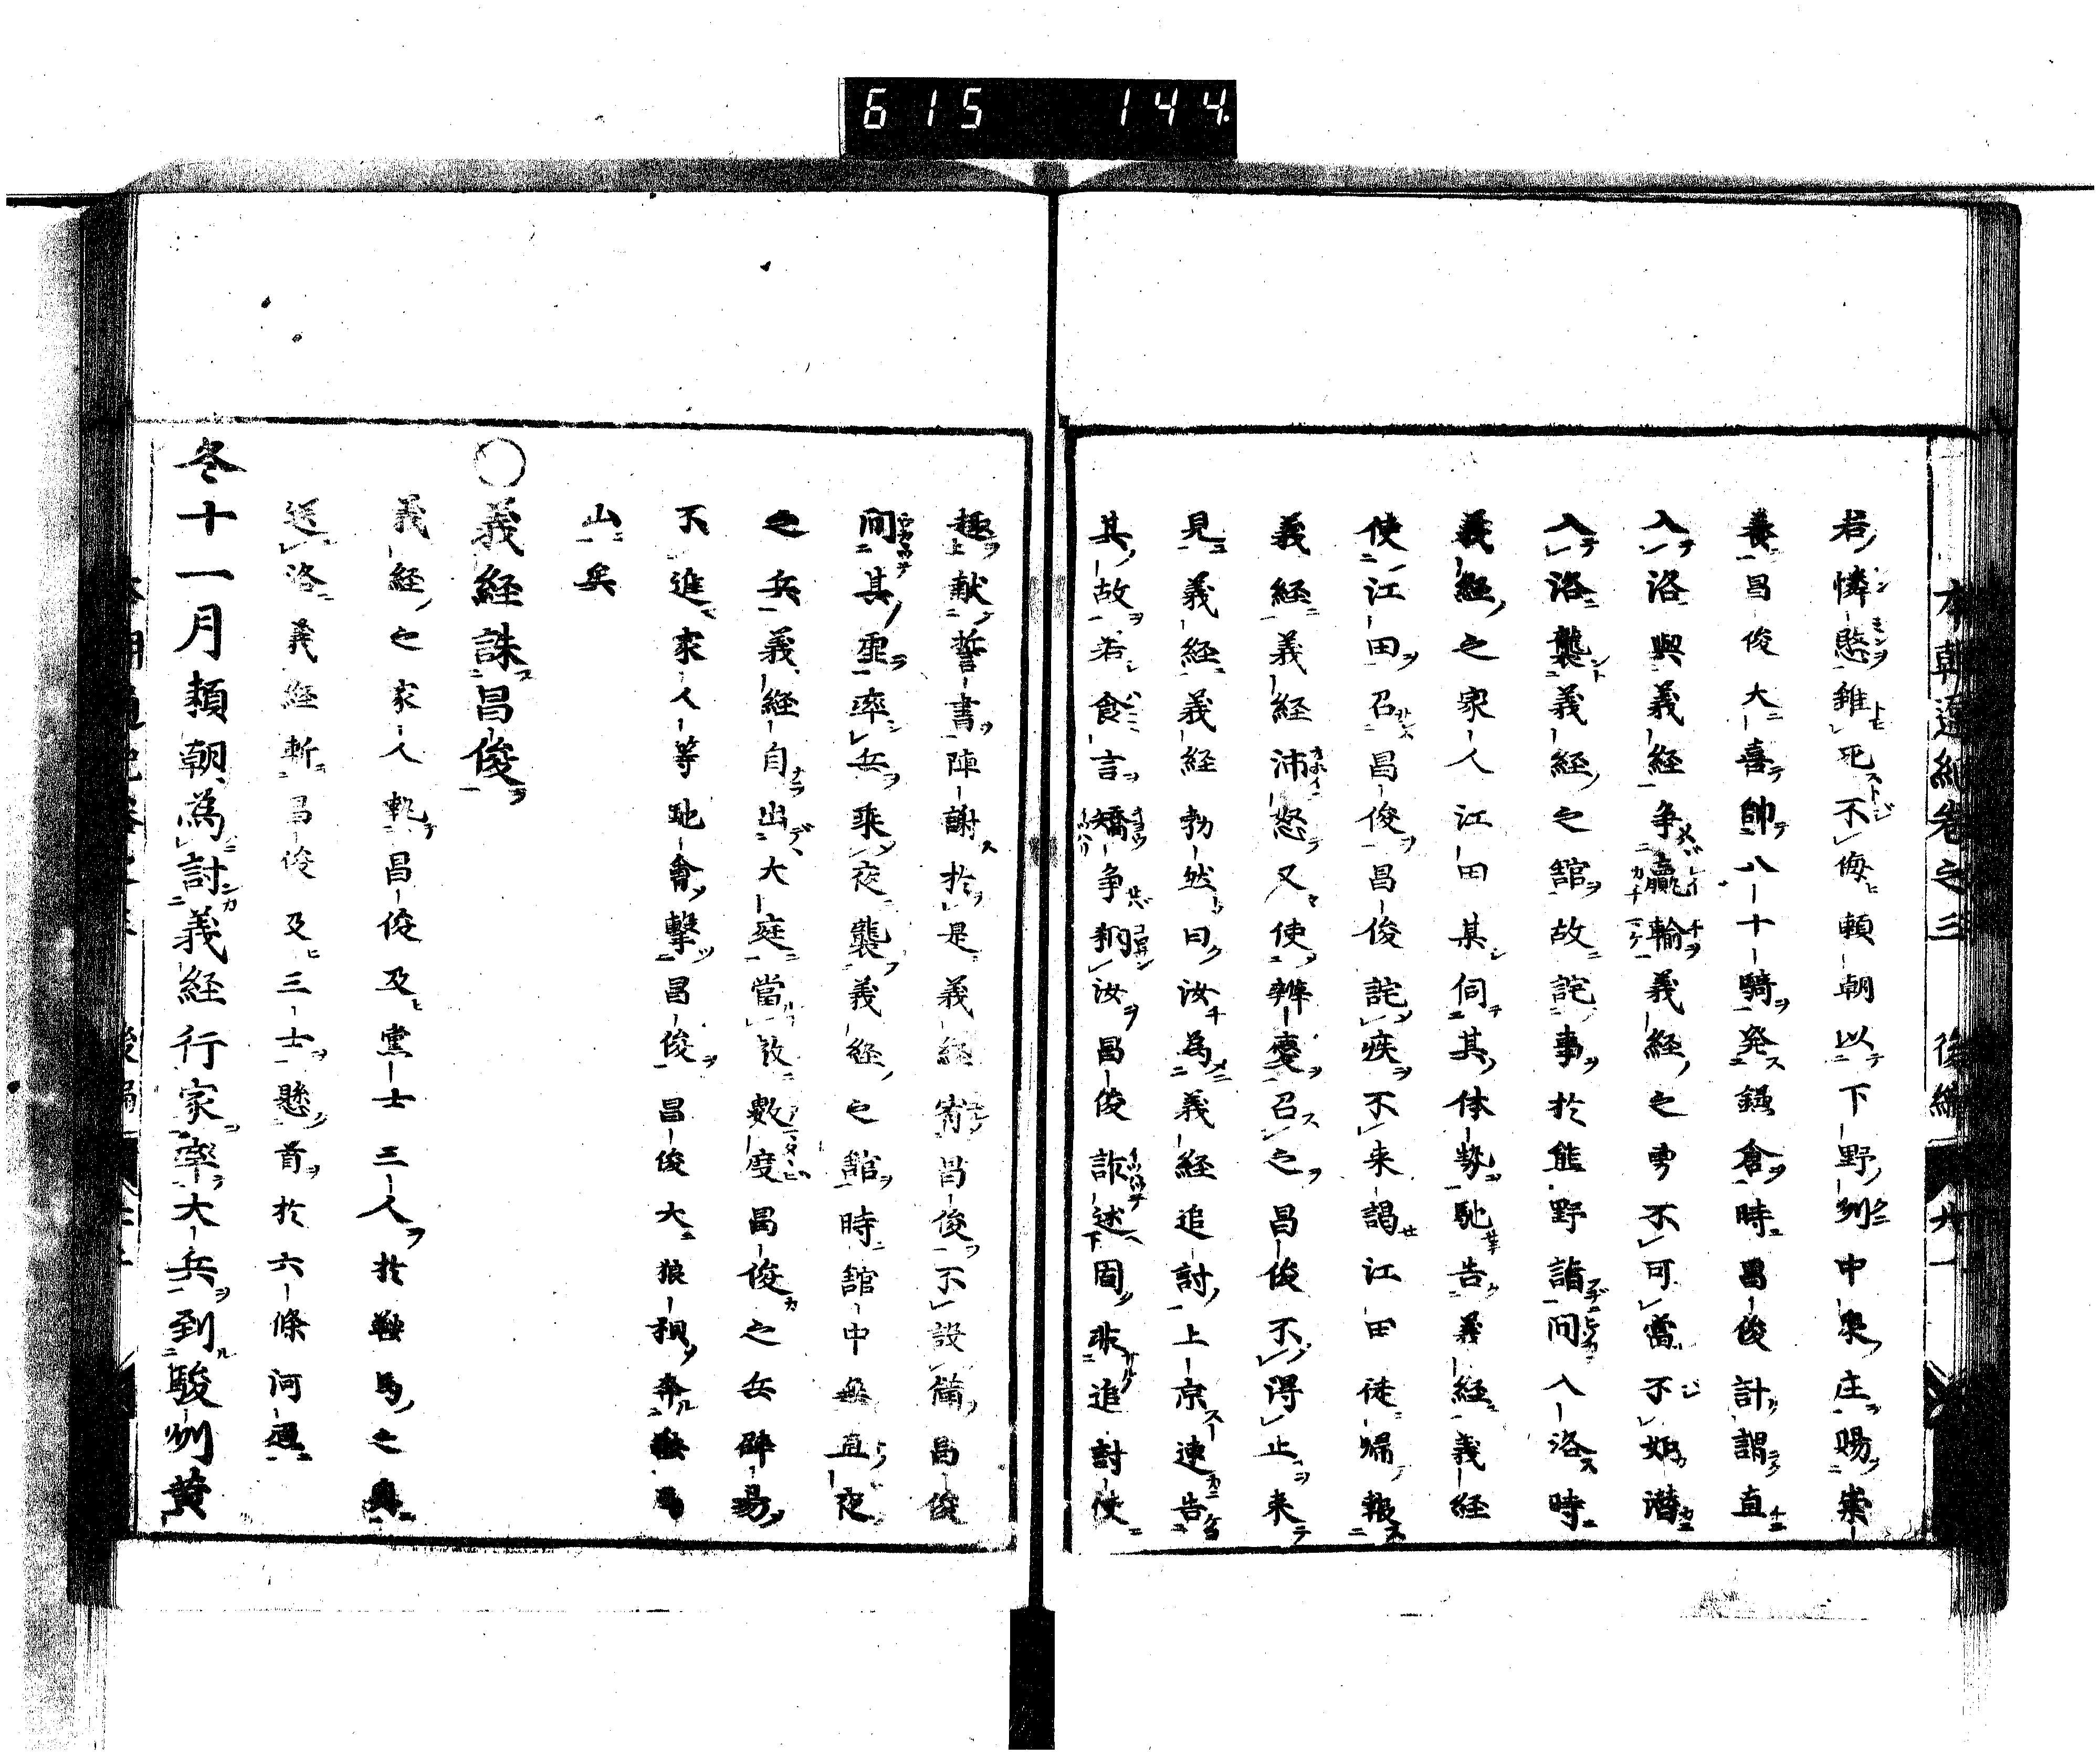 615 144
本朝通紀巻之三 後編 廿一
君憐愍雖死不侮頼朝以下野州中泉庄賜
養昌俊大喜帥八十騎発鎌倉時昌俊計謂直
入洛與義経争贏輸義経之勇不可當不如潜
入洛襲義経之舘故詫事於熊野詣問入洛時
義経之家人江田某伺其体勢馳告義経義経
使江田召昌俊昌俊詫疾不来謁江田徒帰報
義経義経沛怒又使辨慶召之昌俊不得止来
見義経義経勃然曰汝為義経追討上京速告
其故若食言矯争拘汝昌俊詐述固非追討使
趣献誓書陣謝於是義経宥昌俊不設備昌俊
間其虚率兵乗夜襲義経之舘時舘中無直夜
之兵義経自出大庭當敵数度昌俊之兵辟易
不進家人等馳會撃昌俊昌俊大狼狽奔鞍馬
山矣
○義経誅昌俊
義経之家人執昌俊及党士三人於鞍馬之奥
送洛義経斬昌俊及三士懸首於六條河
冬十一月頼朝為討義経行家率大兵到駿州黄